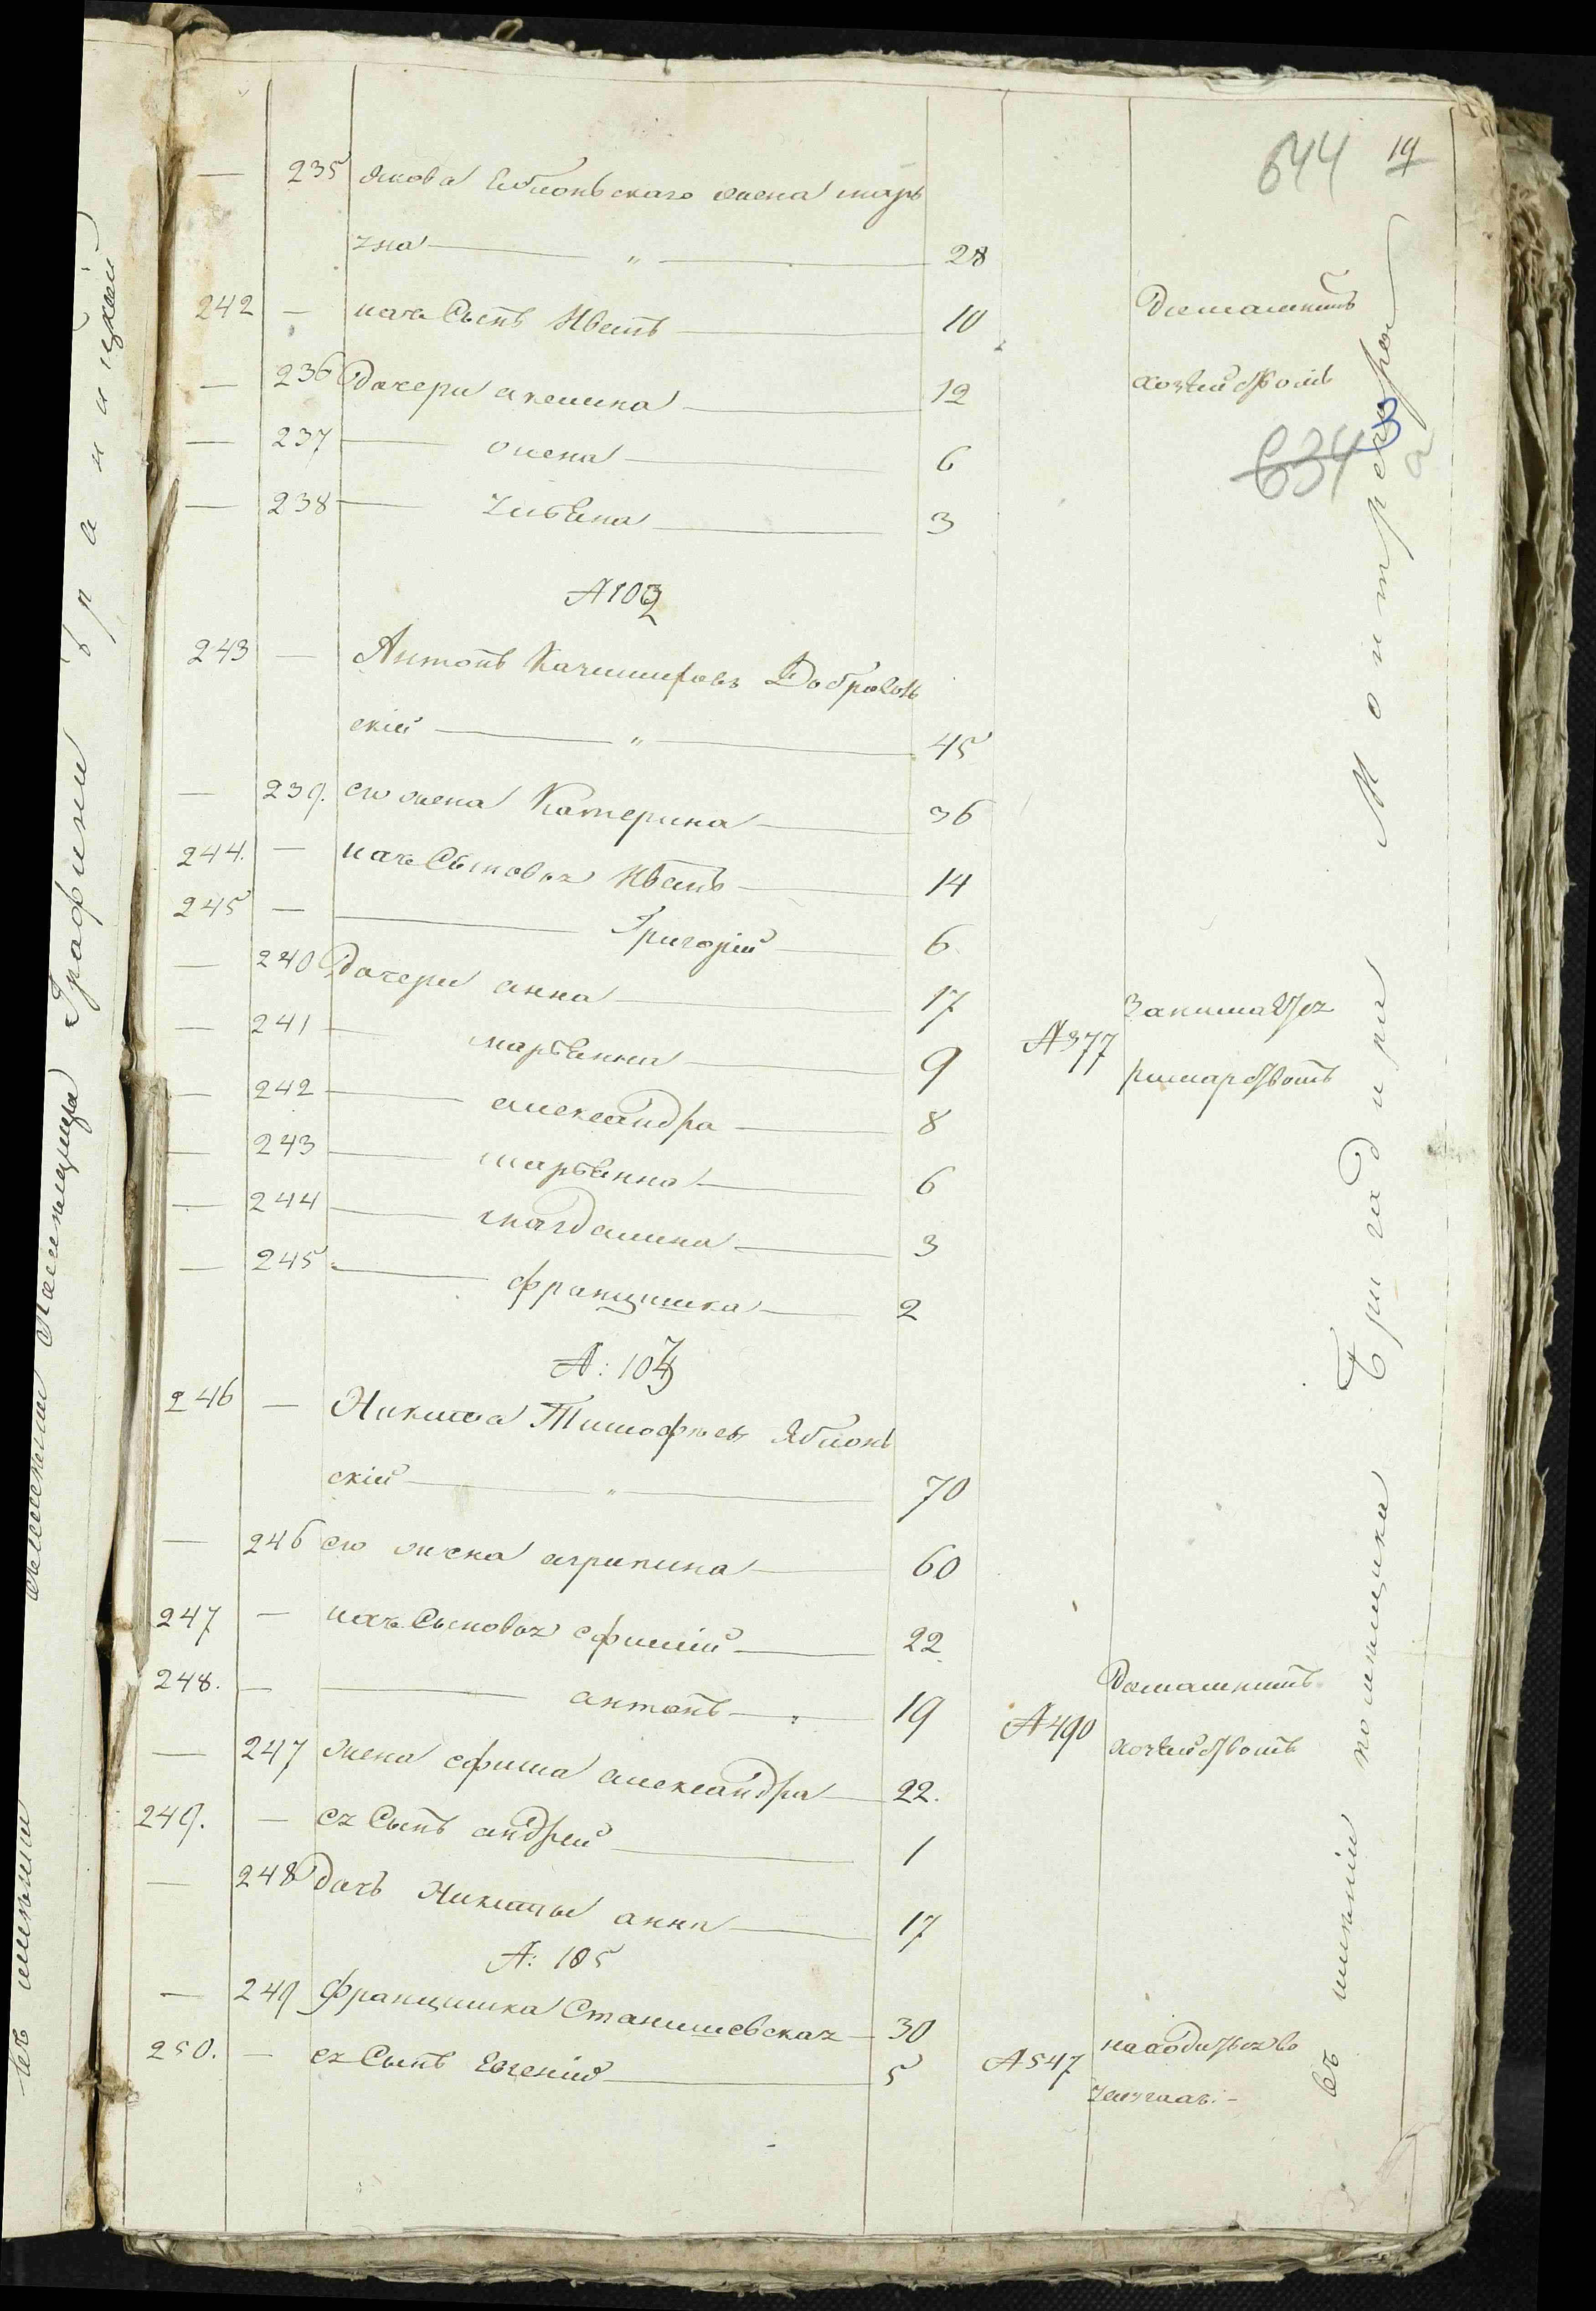 644 19
— 235 Якова Яблоньскаго жена марь
яна — „ — 28
242 — ихъ Сынъ Иванъ — 10 Домашнимъ
— 236 Дочери акелина — 12 хозяйствомъ
— 237 — олена — 6
634 3 а
— 238 — улияна — 3
№ 103
243 — Антонъ Качимировъ Доброволь
скій — „ — 45
— 239. его жена Катерина — 36
244. — ихъ Сыновья Иванъ — 14
245 — — Григорій — 6
— 240 Дочери анна — 17 Занимается
— 241 — марьянна — 9 № 377 римарствомъ
— 242 — александра — 8
— 243 — марьянна — 6
— 244 — магдалина — 3
— 245 — францишка — 2
№: 104
246 — Никита Тимофѣевъ Яблонь
скій — „ — 70
— 246 его жена агрипина — 60
247 — ихъ Сыновья ефимій — 22
248. — — антонъ — 19 Домашнимъ
— 247 жена ефима александра — 22. № 490 хозяйствомъ
249. — ея Сынъ андрей — 1
— 248 дочь Никиты анна — 17
№: 105
— 249 Францишка Станишевская — 30
250. — ея Сынъ Евгеній — 5 № 547 находится во
услугахъ. -
въ имѣніи помѣщика Бригадира Монтрезора
въ имѣніи Помѣщицы Графини Браницкой